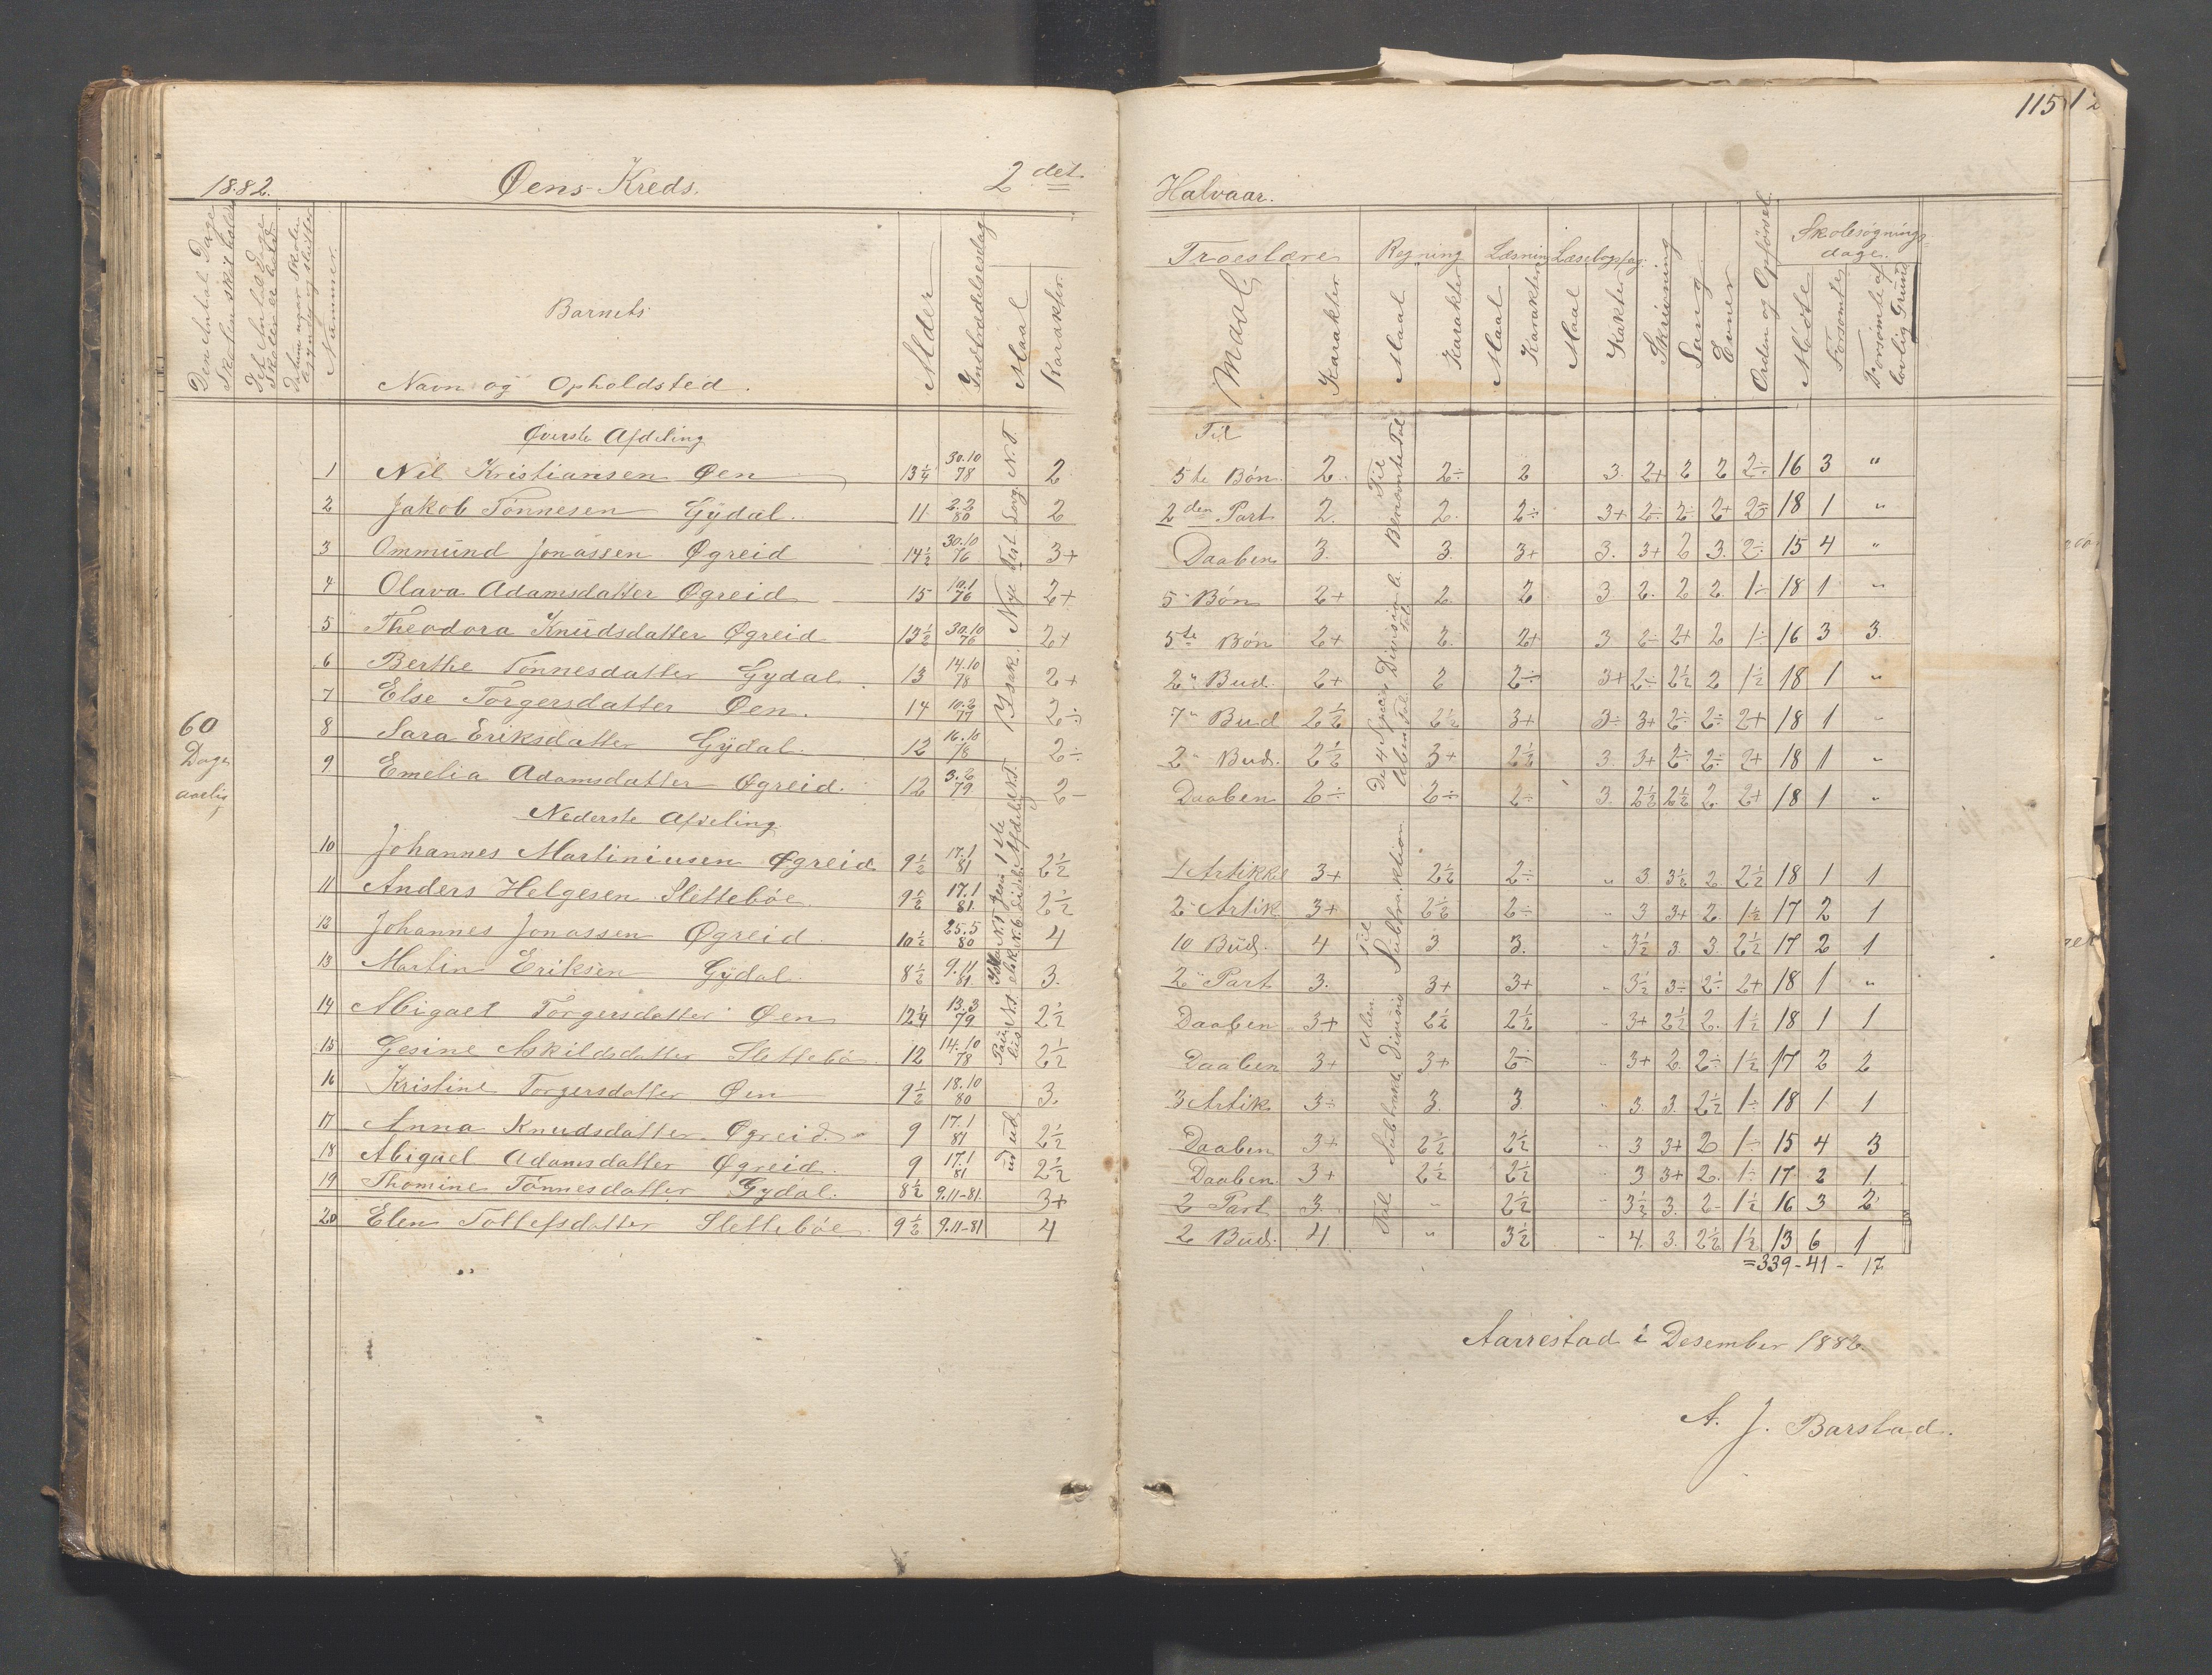 115
1882. Øens Kreds. 2det Halvaar.
Barnets
Navn og Opholdsted.
Nummer.
Alder
Indtrædelsesdag
Maal
Karakter
Troeslære
Maal
Karakter
Regning
Maal
Karakter
Læsning
Maal
Karakter
Læsebogsfag.
Maal
Skrivning
Sang
Evner
Orden og Opførsel.
Skolesøgnings-
dage.
Mødte
Forsømte
Forsømte af
lovlig Grund
60
Dage
aarlig
Øverste Afdeling
Til
1 Nil Kristiansen Øen 13¼ 30.10 78 2 5te Bøn 2. 2÷ 2 3. 2+ 2 2 2÷ 16 3 "
2 Jakob Tønnesen Gÿdal. 11 2.2 80 2 2den Part 2. 2. 2÷ 3+ 2÷ 2÷ 2+ 2÷ 18 1 "
3 Ommünd Jonassen Øgreid 14½ 30.10 76 3+ Daaben 3. 3. 3+ 3. 3+ 2 3. 2÷ 15 4 "
4 Olava Adamsdatter Øgreid 15 10.1 76 2+ 5" Bøn 2+ 2. 2 3 2. 2 2. 1÷ 18 1 "
5 Theodora Knüdsdatter Øgreid 13½ 30.10 76 2+ 5te Bøn 2+ 2. 2+ 3. 2÷ 2+ 2 1÷ 16 3 3.
6 Berthe Tønnesdatter Gydal 13 14.10 78 2+ 2" Bud. 2+ 2 2÷ 3+ 2÷ 2½ 2 1½ 18 1 "
7 Else Torgersdatter Øen. 14 10.2 77 2÷ 7" Bud 2½ 2½ 3+ 3÷ 3+ 2÷ 2÷ 2+ 18 1 "
8 Sara Eriksdatter Gÿdal. 12 16.10 78 2÷ 2" Bud. 2½ 3+ 2½ 3. 3+ 2÷ 2÷ 2+ 18 1 "
9 Emelia Adamsdatter Øgreid. 12 3.2 79 2- Daaben 2÷ 2÷ 2÷ 3. 2½ 2½ 2. 2+ 18 1 "
Nederste Afdeling
10 Johannes Martiniusen Øgreid 9½ 17.1 81 2½ 1 Artikke 3+ 2½ 2÷ " 3. 3½ 2. 2½ 18 1 1
11 Anders Helgesen Slettebøe. 9½ 17.1 81. 2½ 2" Artik 3+ 2½ 2÷ " 3 3+ 2. 1½ 17 2 1
12 Johannes Jonassen Øgreid. 10½ 25.5 80 4 10 Büd. 4 3 3. " 3½ 3. 3. 2½ 17 2 1
13 Martin Eriksen Gÿdal. 8½ 9.11 81 3. 2" Part 3. 3+ 3+ " 3½ 3÷ 2½ 2+ 18 1 "
14 Abigael Torgersdatter Øen 12¼ 13.3 79 2½ Daaben 3+ 2½ 2½ " 3+ 2½ 2. 1½ 18 1 1
15 Gesine Askildsdatter Slettebø. 12 14.10 78 2½ Daaben 3+ 3+ 2÷ " 3+ 2. 2÷ 1½ 17 2 2
16 Kristine Torgersdatter Øen 9½ 18.10 80 3. 3 Artik 3÷ 3. 3 " 3. 3. 2½ 1÷ 18 1 1
17 Anna Knudsdatter Øgreid. 9 17.1 81 2½ Daaben 3+ 2½ 2½ " 3 3+ 2 1÷ 15 4 3
18 Abigael Adamsdatter Øgreid. 9 17.1 81 2½ Daaben 3+ 2½ 2½ " 3 3+ 2. 1÷ 17 2 1
19 Thomine Tønnesdatter Gydal. 8½ 9.11-81. 3+ 2 Part 3. " 2½ " 3½ 3. 2- 1½ 16 3 2
20 Elen Tollefsdatter Slettebøe. 9½ 9.11-81 4 2 Bud. 4 " 3½ " 4. 3. 2½ 1½ 13 6 1
=339-41-17
Aarrestad i Desember 1882.
A. J. Barstad.